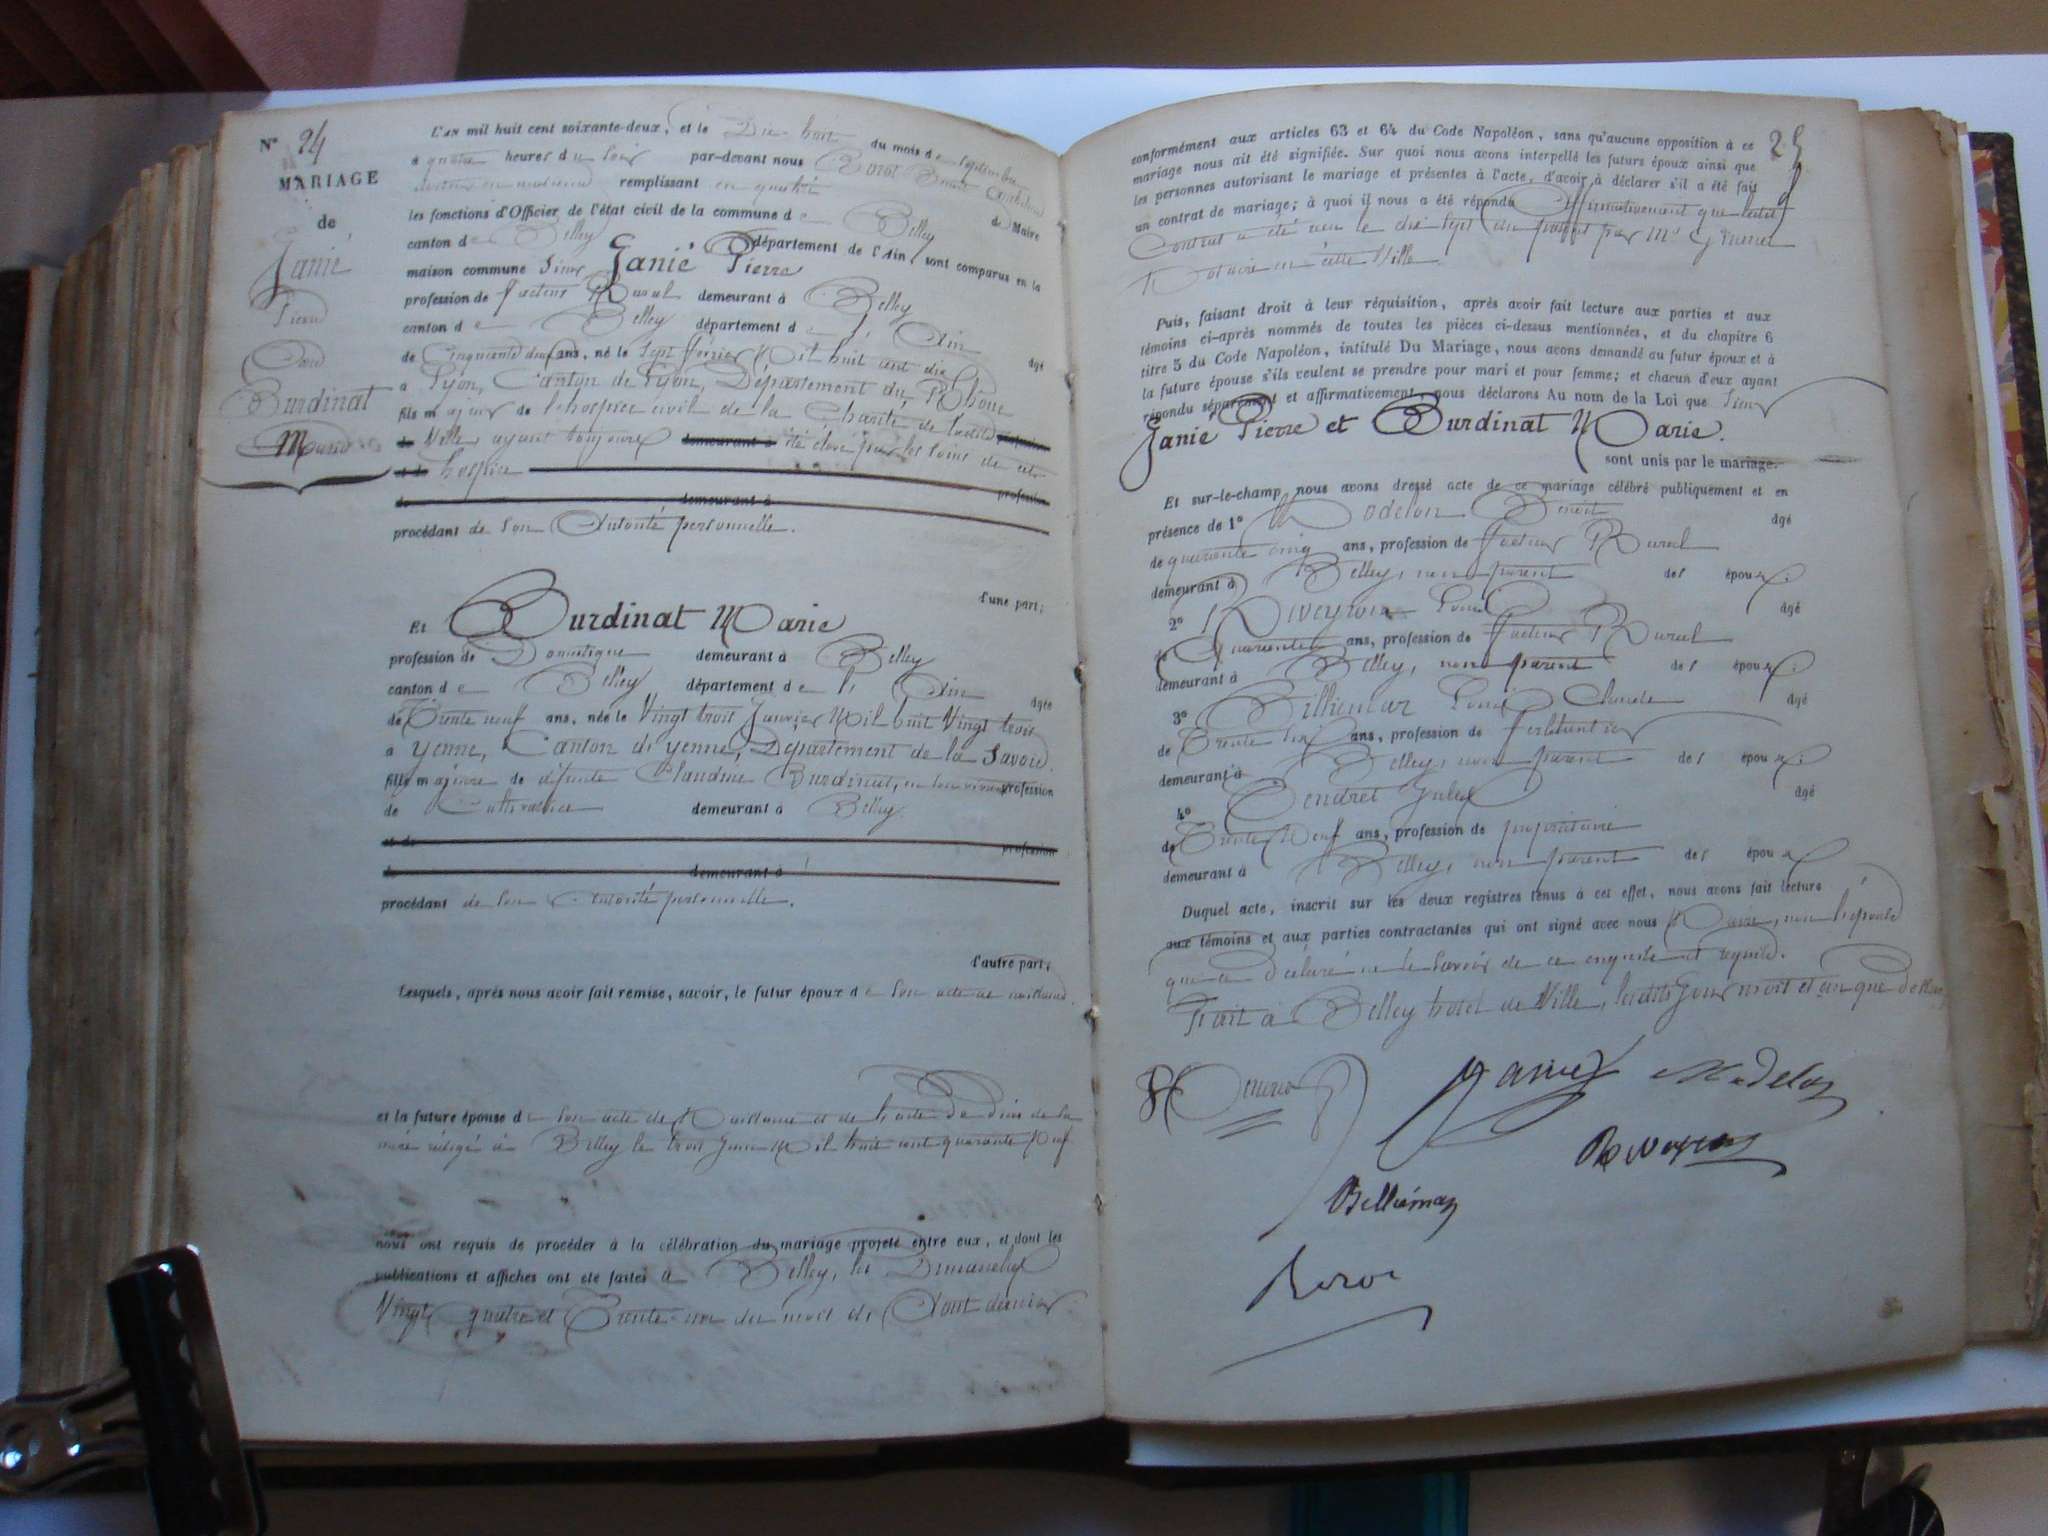 N° 24
MARIAGE
de
Janié
Pierre
Burdinat
Marie
L'AN mil huit cent soixante-deux, et le Dix huit du mois de Septembre
à quatre heures du Soir par-devant nous
remplissant en qualité
de Maire
les fonctions d'Officier de l'état civil de la commune de Belley
canton de Belley département de l'Ain, sont comparus en la
maison commune Sieur Janié Pierre
profession de facteur Rural demeurant à Belley
canton de Belley département de l'Ain
âgé
de Cinquante deux ans, né le Sept février Mil huit cent dix
à Lyon, Canton de Lyon, Département du Rhône
fils majeur de l'hospice civil de la Charité de ladite
Ville ayant toujours été élevé par les soins de cet
hospice
procédant de son Autorité personnelle.
d'une part;
Et Burdinat Marie
profession de Domestique demeurant à Belley
canton de Belley département de l'Ain
âgée
de Trente neuf ans, née le Vingt trois Janvier Mil huit Vingt trois
à Yenne, Canton de Yenne, Département de la Savoie.
fille majeure de défunte Claudine Burdinat, en son vivant profession
de Cultivatrice demeurant à Belley.
procédant de son Autorité personnelle.
d'autre part;
Lesquels, après nous avoir fait remise, savoir, le futur époux de son acte de naissance.
et la future épouse de son acte de Naissance et de l'acte de Décès de sa
mère rédigé à Belley le trois Juin Mil huit cent quarante Neuf
nous ont requis de procéder à la célébration du mariage projeté entre eux, et dont les
publications et affiches ont été faites à Belley, les Dimanches
Vingt quatre et Trente-un du mois de Août dernier
25
conformément aux articles 63 et 64 du Code Napoléon, sans qu'aucune opposition à ce
mariage nous ait été signifiée. Sur quoi nous avons interpellé les futurs époux ainsi que
les personnes autorisant le mariage et présentes à l'acte, d'avoir à déclarer s'il a été fait
un contrat de mariage; à quoi il nous a été répondu Affirmativement que ledit
Contrat a été reçu le dix Sept du présent par Me
Notaire en cette Ville
Puis, faisant droit à leur réquisition, après avoir fait lecture aux parties et aux
témoins ci-après nommés de toutes les pièces ci-dessus mentionnées, et du chapitre 6
titre 5 du Code Napoléon, intitulé Du Mariage, nous avons demandé au futur époux et à
la future épouse s'ils veulent se prendre pour mari et pour femme; et chacun d'eux ayant
répondu séparément et affirmativement, nous déclarons Au nom de la Loi que Sieur
Janié Pierre et Burdinat Marie.
sont unis par le mariage.
Et sur-le-champ nous avons dressé acte de ce mariage célébré publiquement et en
présence de 1° Modelon Benoit âgé
de quarante cinq ans, profession de facteur Rural
demeurant à Belley, non parent des époux;
2° Louis âgé
de Quarante ans, profession de facteur Rural
demeurant à Belley, non parent des époux;
3° Billiémaz Louis Claude âgé
de Trente six ans, profession de ferblantier
demeurant à Belley, non parent des époux;
4° Tendret Jules âgé
de Trente Neuf ans, profession de propriétaire
demeurant à Belley, non parent des époux.
Duquel acte, inscrit sur les deux registres tenus à cet effet, nous avons fait lecture
aux témoins et aux parties contractantes qui ont signé avec nous Maire, non l'épouse
qui a déclaré ne le savoir de ce enquise et requise.
Fait à Belley hotel de Ville, lesdits Jour mois et an que dessus
Janiez
Modelon
Billiémaz